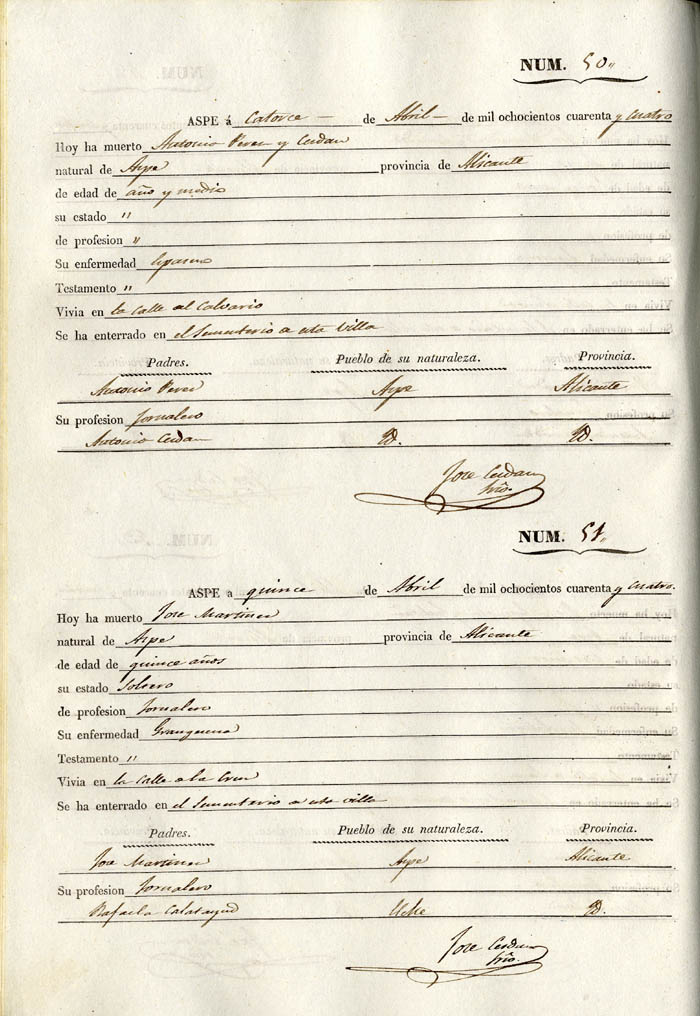 NUM. 50,,
ASPE á catorce de Abril de mil ochocientos cuarenta y cuatro
Hoy ha muerto Antonio Perez y Cerdan
natural de Aspe provincia de Alicante
de edad de año y medio
su estado "
de profesion "
Su enfermedad Espasmo
Testamento "
Vivia en la Calle del Calvario
Se ha enterrado en el Sementerio de esta Villa
Padres. Pueblo de su naturaleza. Provincia.
Antonio Perez Aspe Alicante
Su profesion Jornalero
Antonia Cerdan Yd. Yd.
Jose Cerdan
Srio.
NUM. 51,,
ASPE a quince de Abril de mil ochocientos cuarenta y cuatro
Hoy ha muerto Jose Martinez
natural de Aspe provincia de Alicante
de edad de quince años
su estado Soltero
de profesion Jornalero
Su enfermedad Grangrena
Testamento "
Vivia en la Calle de la Cruz
Se ha enterrado en el Sementerio de esta villa
Padres. Pueblo de su naturaleza. Provincia.
Jose Martinez Aspe Alicante
Su profesion Jornalero
Rafaela Calatayud Elche Yd.
Jose Cerdan
Srio.